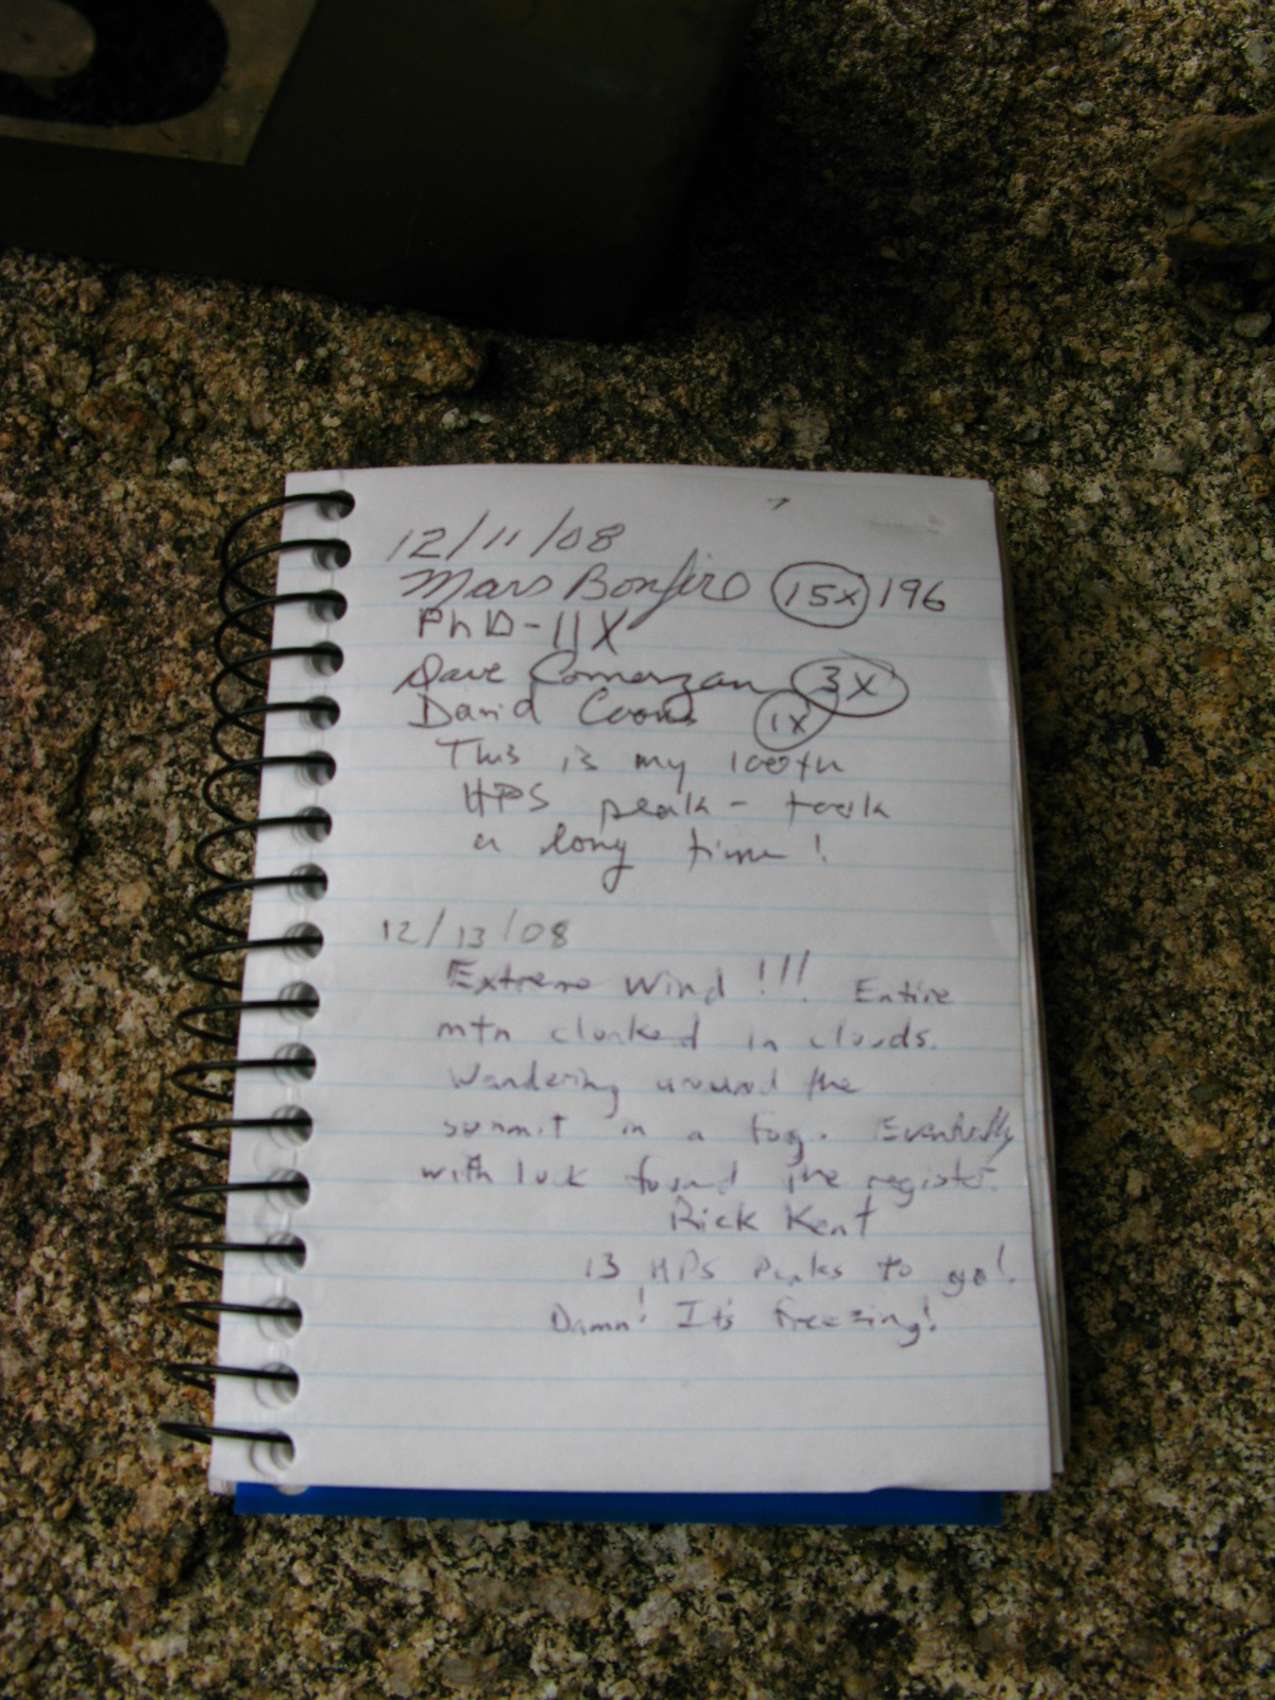 12/11/08
Mars Bonfire 15x 196
PhD-11X
Dave Comerzan 3X
David Coons 1x
This is my 100th
HPS peak - took
a long time!
12/13/08
Extreme Wind!!! Entire
mtn cloaked in clouds.
Wandering around the
summit in a fog. Eventually
with luck found the register.
Rick Kent
13 HPS Peaks to go!
Damn! It's freezing!